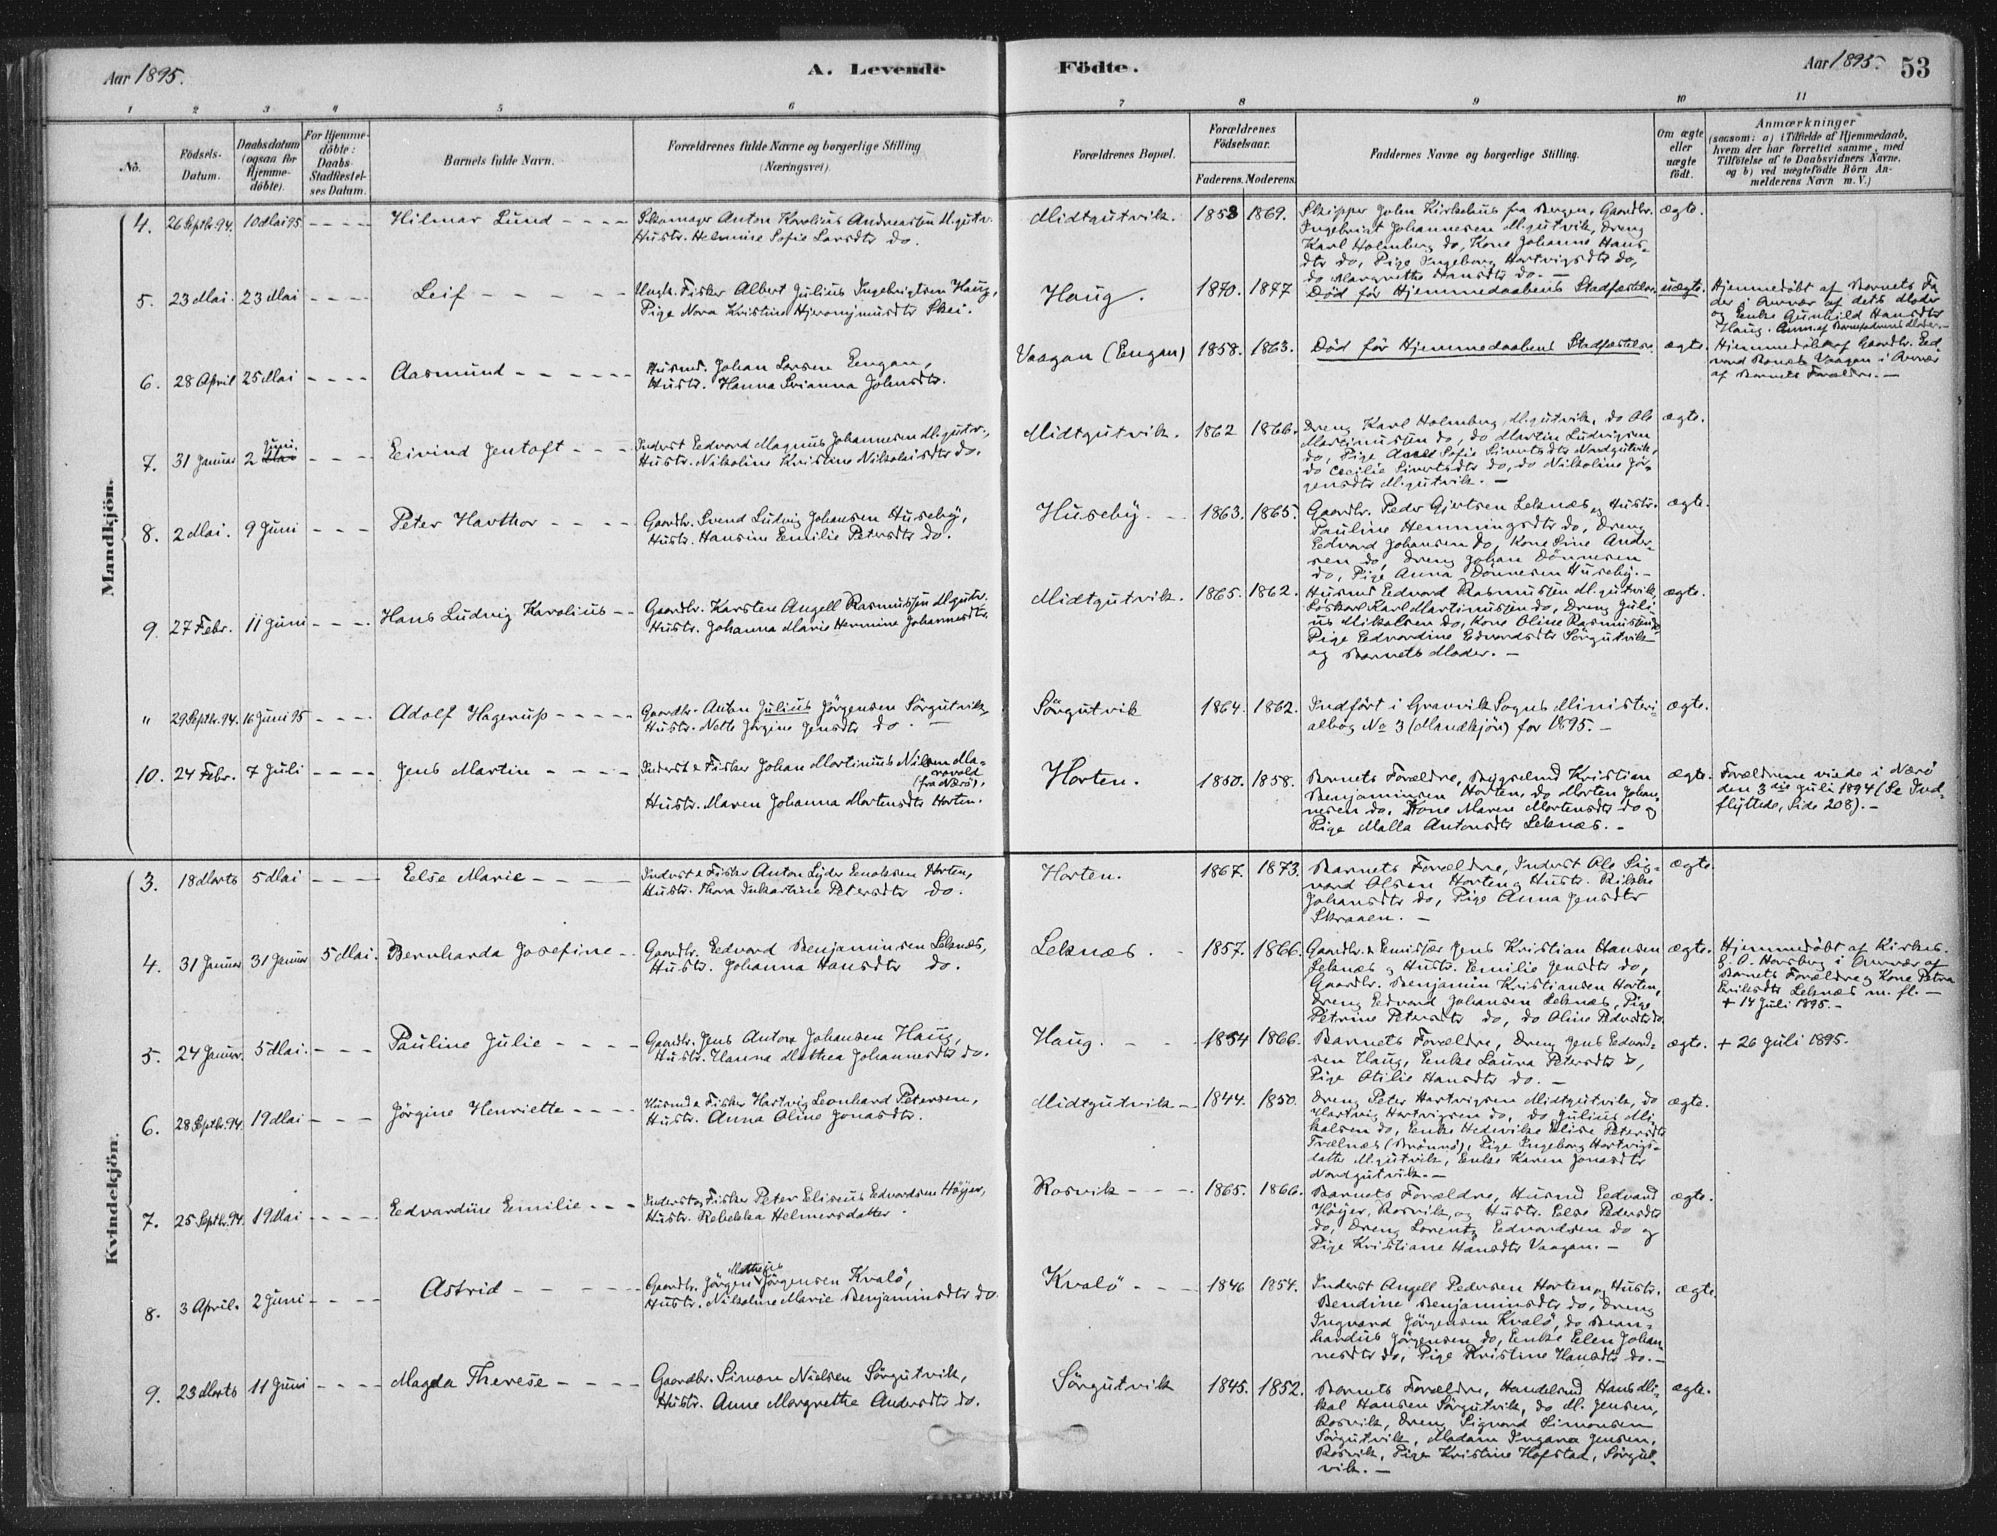 Aar 1895.
A. Levende
Födte.
Aar 1895. 53
1 2 3 4 5 6 7 8 9 10 11
No.
Födsels-
Datum.
Daabsdatum
(ogsaa for
Hjemme-
döbte).
For Hjemme-
döbte:
Daabs-
Stadfæstel-
ses Datum.
Barnets fulde Navn.
Forældrenes fulde Navne og borgerlige Stilling
(Næringsvei).
Forældrenes Bopæl.
Forældrenes
Födselsaar.
Faderens. Moderens.
Faddernes Navne og borgerlige Stilling.
Om ægte
eller
uægte
födt.
Anmærkninger
(saasom: a) i Tilfælde af Hjemmedaab,
hvem der har forrettet samme, med
Tilföielse af to Daabsvidners Navne,
og b) ved uægtefödte Börn An-
melderens Navn m. V.)
Mandkjön.
4. 26 Septbr. 94. 10 Mai 95 Hilmar Lund
Anton Karolius Andreassen M.gutv.
Hustr. Helmine Sofie Larsdtr do.
Midtgutvik. 1853 1869.
Skipper John Kirkehus fra Bergen, Gaardbr.
Ingebrigt Johannesen M.gutvik, Dreng
Karl Holmberg do, Kone Johanne Hans-
dtr do, Pige Ingeborg Hartvigsdtr do,
do Margrethe Hansdtr do. —
ægte.
5. 23 Mai. 23 Mai Leif
Ungk. Fisker Albert Julius Ingebrigtsen Haug,
Pige Nora Kristine Hjeronymusdtr Skei.
Haug. 1870. 1877
Död för Hjemmedaabens Stadfæstelse.
uægte.
Hjemmedöbt af Barnets Fa-
der i Nærvær af dets Moder
og Enke Gunhild Hansdtr
Haug. Anm. af Barnefaderens Moder. —
6. 28 April 25 Mai Aasmund
Husmd. Johan Larsen Engan,
Hustr. Hanna Srianna Johnsdtr.
Vaagan (Engan) 1858. 1863.
Död för Hjemmedaabens Stadfæstelse.
ægte.
Hjemmedöbt af Gaardbr. Ed-
vard Vaagan i Nærvær
af Barnets Forældre. —
7. 31 Januar 2 Juni Eivind Jentoft
Inderst Edvard Magnus Johannesen M.gutv.,
Hustr. Nikoline Kristine Nikolaisdtr do.
Midtgutvik. 1862 1866.
Dreng Karl Holmberg M.gutvik, do Ole
Martinussen do, do Martin Ludvigsen
do, Pige Sofie Sivertsdtr Nordgutvik,
do Cecilie Sivertsdtr do, do Nikoline Jör-
gensdtr M.gutvik. —
ægte.
8. 2 Mai. 9 Juni Peter Havthor
Gaardbr. Svend Ludvig Johansen Huseby,
Hustr. Hansine Emilie Petersdtr do.
Huseby. 1863. 1865.
Gaardbr. Peder Gjertsen Leknæs, og Hustr.
Pauline Hemmingsdtr do, Dreng
Edvard Johansen do, Kone Sine Ander-
sen do, Dreng Johan Dönnesen
do, Pige Anna Dönnesen Huseby. —
ægte.
9. 27 Febr. 11 Juni Hans Ludvig Karolius
Gaardbr. Karsten Angell Rasmussen M.gutv.
Hustr. Johanna Marie Hermine Johannesdtr.
Midtgutvik. 1865. 1862.
Husmd Edvard Rasmussen M.gutvik,
Löskarl Karl Martinussen do, Dreng Juli-
us Mikalsen do, Kone Oline Rasmussen do,
Pige Edvardine Edvardsdtr Sörgutvik
og Barnets Moder. —
ægte.
" 29 Septbr. 94. 16 Juni 95 Adolf Hagerup
Gaardbr. Anton Julius Jörgensen Sörgutvik,
Hustr. Nette Jörgine Jensdtr do. —
Sörgutvik 1864. 1862.
Indfört i Gravvik Sogns Ministeri-
albog No 3 (Mandkjön) for 1895. —
ægte.
10. 24 Febr. 7 Juli Jens Martin
Inderst & Fisker Johan Martinus Nilsen Ma-
ravold
(fra Nærö),
Hustr. Maren Johanna Mortensdtr Horten.
Horten. 1850. 1858.
Barnets Forældre, Bygselmd Kristian
Benjaminsen Horten, do Morten Johan-
nesen do, Kone Maren Mortensdtr do og
Pige Malla Antonsdtr Leknæs. —
ægte.
Forældrene viede i Nærö
den 3die Juli 1894 (Se Ind-
flyttede, Side 208). —
Kvindekjön.
3. 18 Marts 5 Mai Else Marie
Inderst & Fisker Anton Lyder Enoksen Horten,
Hustr. Thora Inkartine Petersdtr do.
Horten. 1867. 1873.
Barnets Forældre, Inderst Ole Sig-
vard Olsen Horten, Hustr. Rikke
Johansdtr do, Pige Anna Jensdtr
Skraaen. —
ægte.
4. 31 Januar 31 Januar 5 Mai. Bernharda Josefine
Gaardbr. Edvard Benjaminsen Leknæs,
Hustr. Johanna Hansdtr do.
Leknæs. 1857. 1866.
Gaardbr. & Emissær Jens Kristian Hansen
Leknæs og Hustr. Emilie Jensdtr do,
Gaardbr. Benjamin Kristiansen Horten,
Dreng Edvard Johansen Leknæs, Pige
Petrine Petersdtr do, do Oline Pedersdtr do.
ægte.
Hjemmedöbt af Kirkes.
E. A. Horsberg i Nærvær af
Barnets Forældre og Kone Petra
Eriksdtr Leknæs m. fl. —
+ 14 Juli 1895. —
5. 24 Januar. 5 Mai. Pauline Julie
Gaardbr. Jens Anton Johansen Haug,
Hustr. Hanna Mathea Johannesdtr do.
Haug. 1854 1866.
Barnets Forældre, Dreng Jens Edvard-
sen Haug, Enke Laura Petersdtr do,
Pige Otilie Hansdtr do. —
ægte.
+ 26 Juli 1895.
6. 28 Septbr. 94. 19 Mai Jörgine Henriette
Husmd & Fisker Hartvig Leonhard Petersen,
Hustr. Anna Oline Jonasdtr.
Midtgutvik 1844. 1850.
Dreng Peter Hartvigsen Midtgutvik, do
Hartvig Hartvigsen do, do Julius Mi-
kalsen do, Enke Hedevike Elise Petersdtr
Trælnæs (Brönnö), Pige Ingeborg Hartvigs-
datter M.gutvik, Enke Karen Jonasdtr
Nordgutvik. —
ægte.
7. 25 Septbr. 94. 19 Mai Edvardine Emilie
Inderst og Fisker Peter Eliseus Edvardsen Höyer,
Hustr. Rebekka Helmersdatter.
Rosvik 1865. 1866.
Barnets Forældre, Husmd Edvard
Höyer, Rosvik, og Hustr. Else Pedersdtr
do, Dreng Lorentz Edvardsen do og
Pige Kristiane Hansdtr Vaagan. —
ægte.
8. 3 April. 2 Juni Astrid
Gaardbr. Jörgen Matheus Jörgensen Kvalö,
Hustr. Nikoline Marie Benjaminsdtr do.
Kvalö 1846 1854.
Inderst Angell Pedersen Horten, Hustr.
Bendine Benjaminsdtr do, Dreng
Ingvard Jörgensen Kvalö, do Bern-
hardus Jörgensen do, Enke Elen Johan-
nesdtr do, Pige Kristine Hansdtr do. —
ægte.
9. 23 Marts 11 Juni Magda Therese
Gaardbr. Simon Nielsen Sörgutvik,
Hustr. Anne Margrethe Andersdtr do.
Sörgutvik 1845. 1852.
Barnets Forældre, Handelsmd Hans Mi-
kal Hansen Sörgutvik, do M. Jensen,
Rosvik, Dreng Sigvard Simonsen
Sörgutvik, Madam Ingara Jensen,
Rosvik, Pige Kristine Hofstad, Sörgut-
vik. —
ægte.